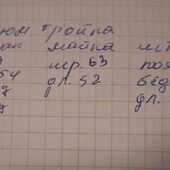 юм тройка
ак майка шт
шр. 63 поя
54 дл. 52 бед
дл.